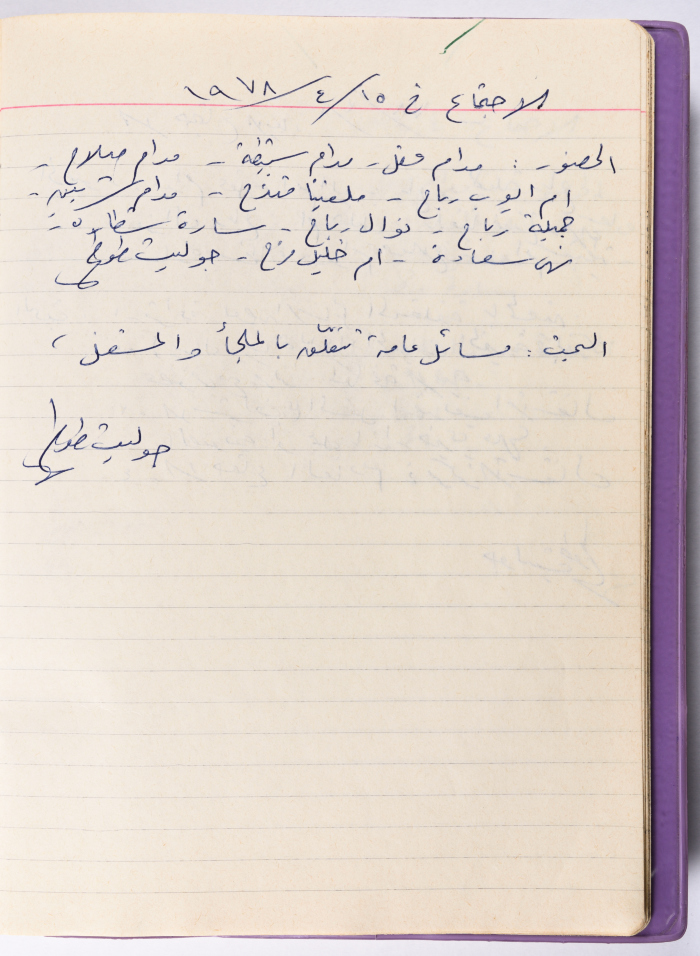 الاجتماع في ١٥/٤/١٩٧٨
الحضور : مدام عقل - مدام - مدام صلاح -
ام ايوب رباح - ملفينا - مدام -
جميلة رباح - نوال رباح - سارة -
نهى سعادة - ام خليل فرح - جوليت طوطح
البحث : مسائل عامة تتعلق بالملجأ والمشغل ،
جوليت طوطح